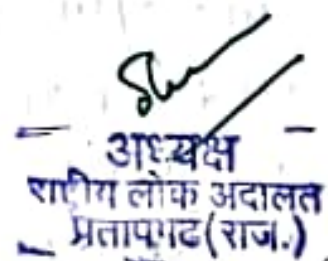 अध्यक्ष
राष्ट्रीय लोक अदालत
प्रतापगढ (राज.)